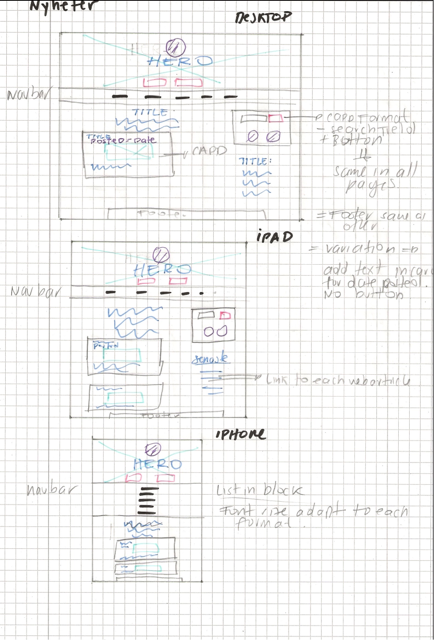 Nyheter
DESKTOP
HERO
navbar
TITLE
TITLE
posted-date
CARD
TITLE:
card format
- search field
+ Button
same in all
pages
= Footer
iPAD
HERO
= variation =>
add text in
for date posted.
No button
navbar
senaste
Link to each
iPHONE
HERO
navbar
List in block
Font size adapt to each
format